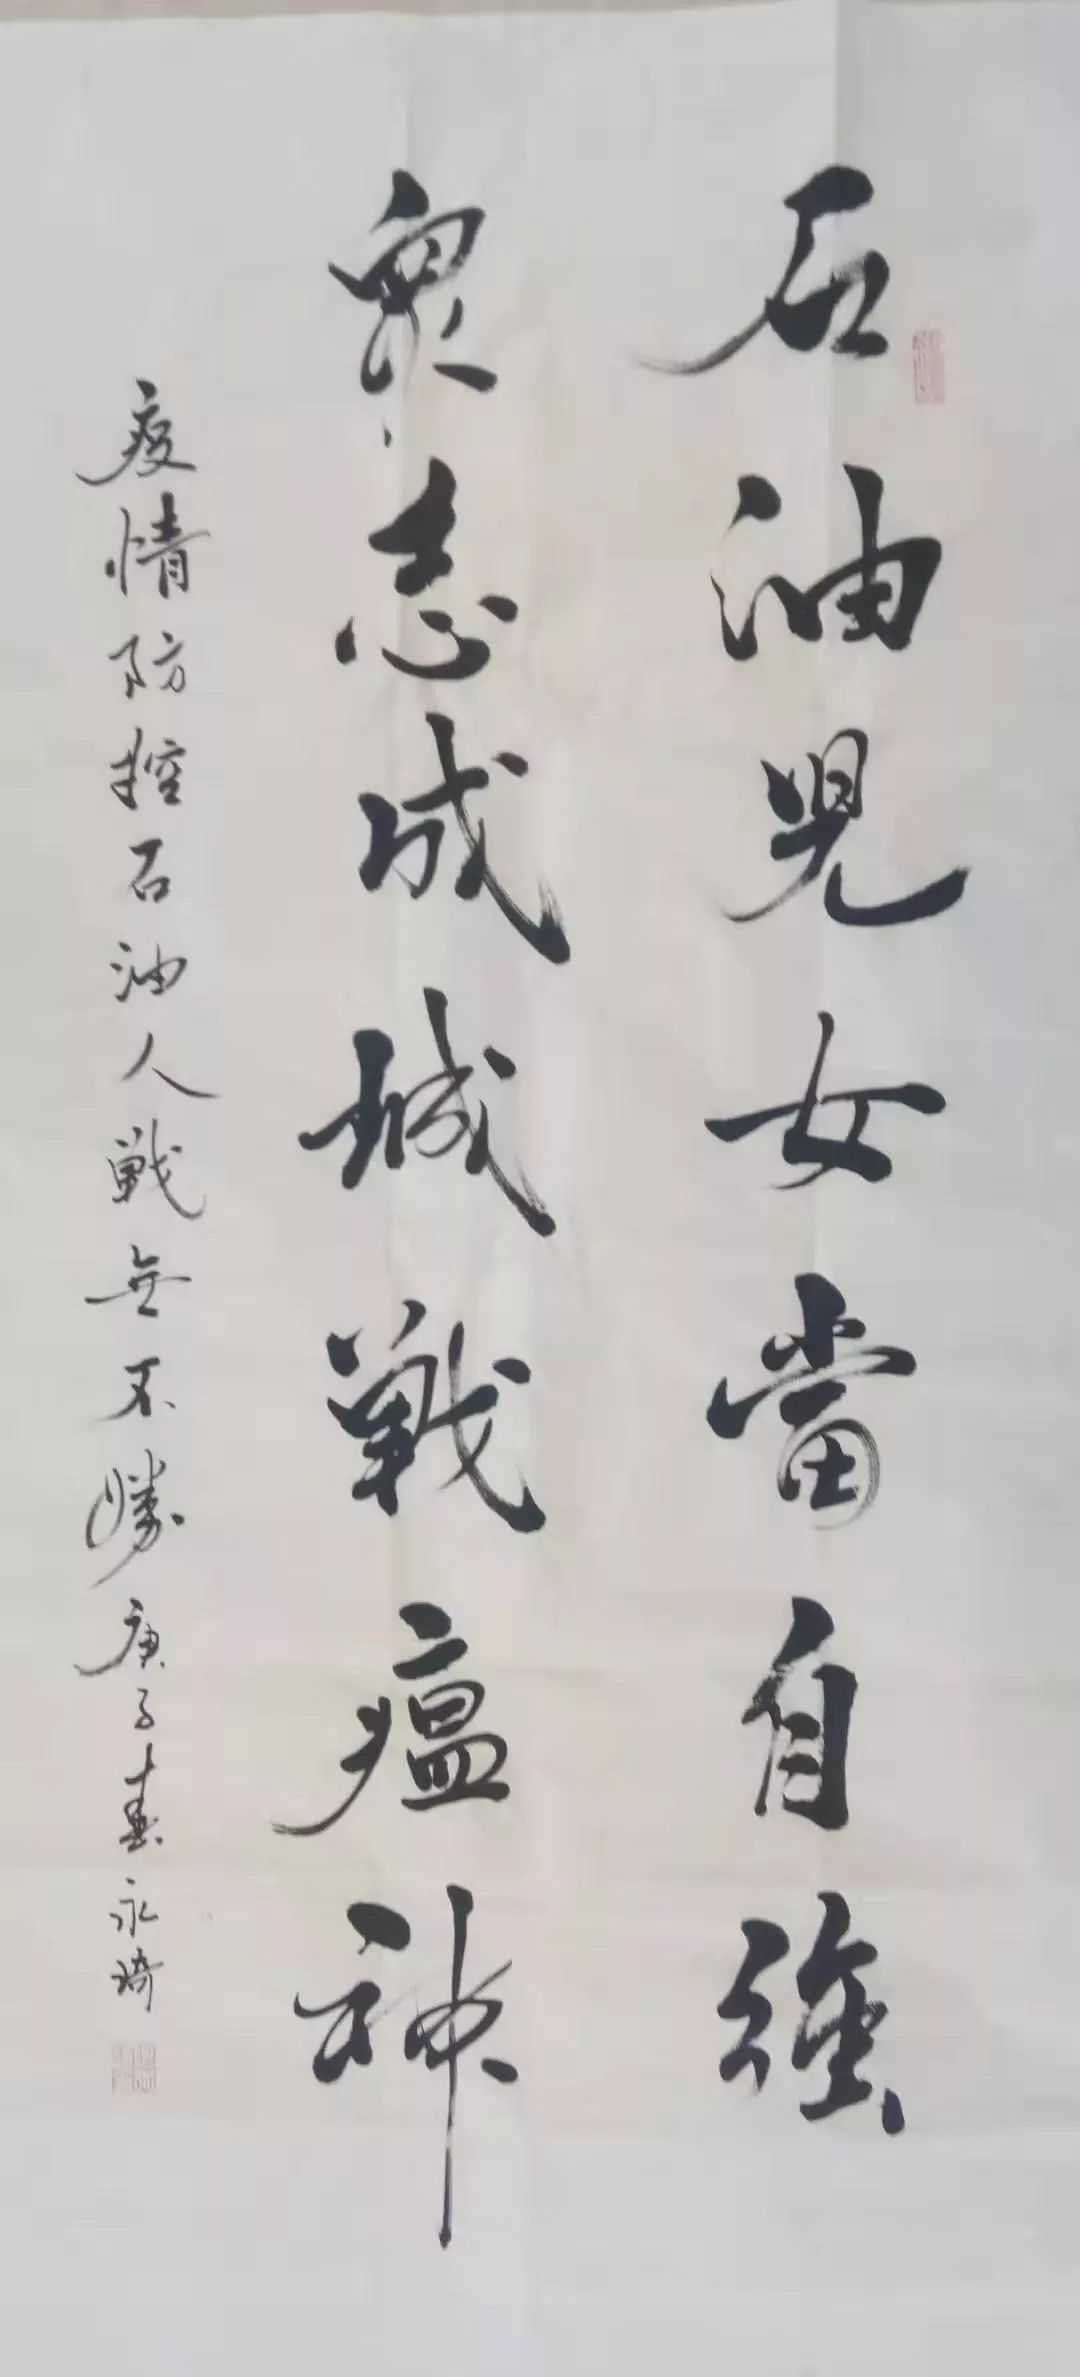 石油児女當自強
衆志成城戰瘟神
疫情防控石油人戰無不勝庚子春永琦